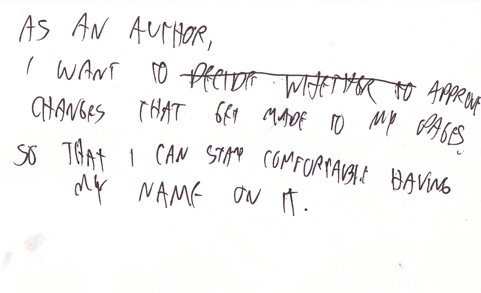 AS AN AUTHOR,
I WANT TO DECIDE WHETHER TO APPROVE
CHANGES THAT GET MADE TO MY PAGES
SO THAT I CAN STAY COMFORTABLE HAVING
MY NAME ON IT.